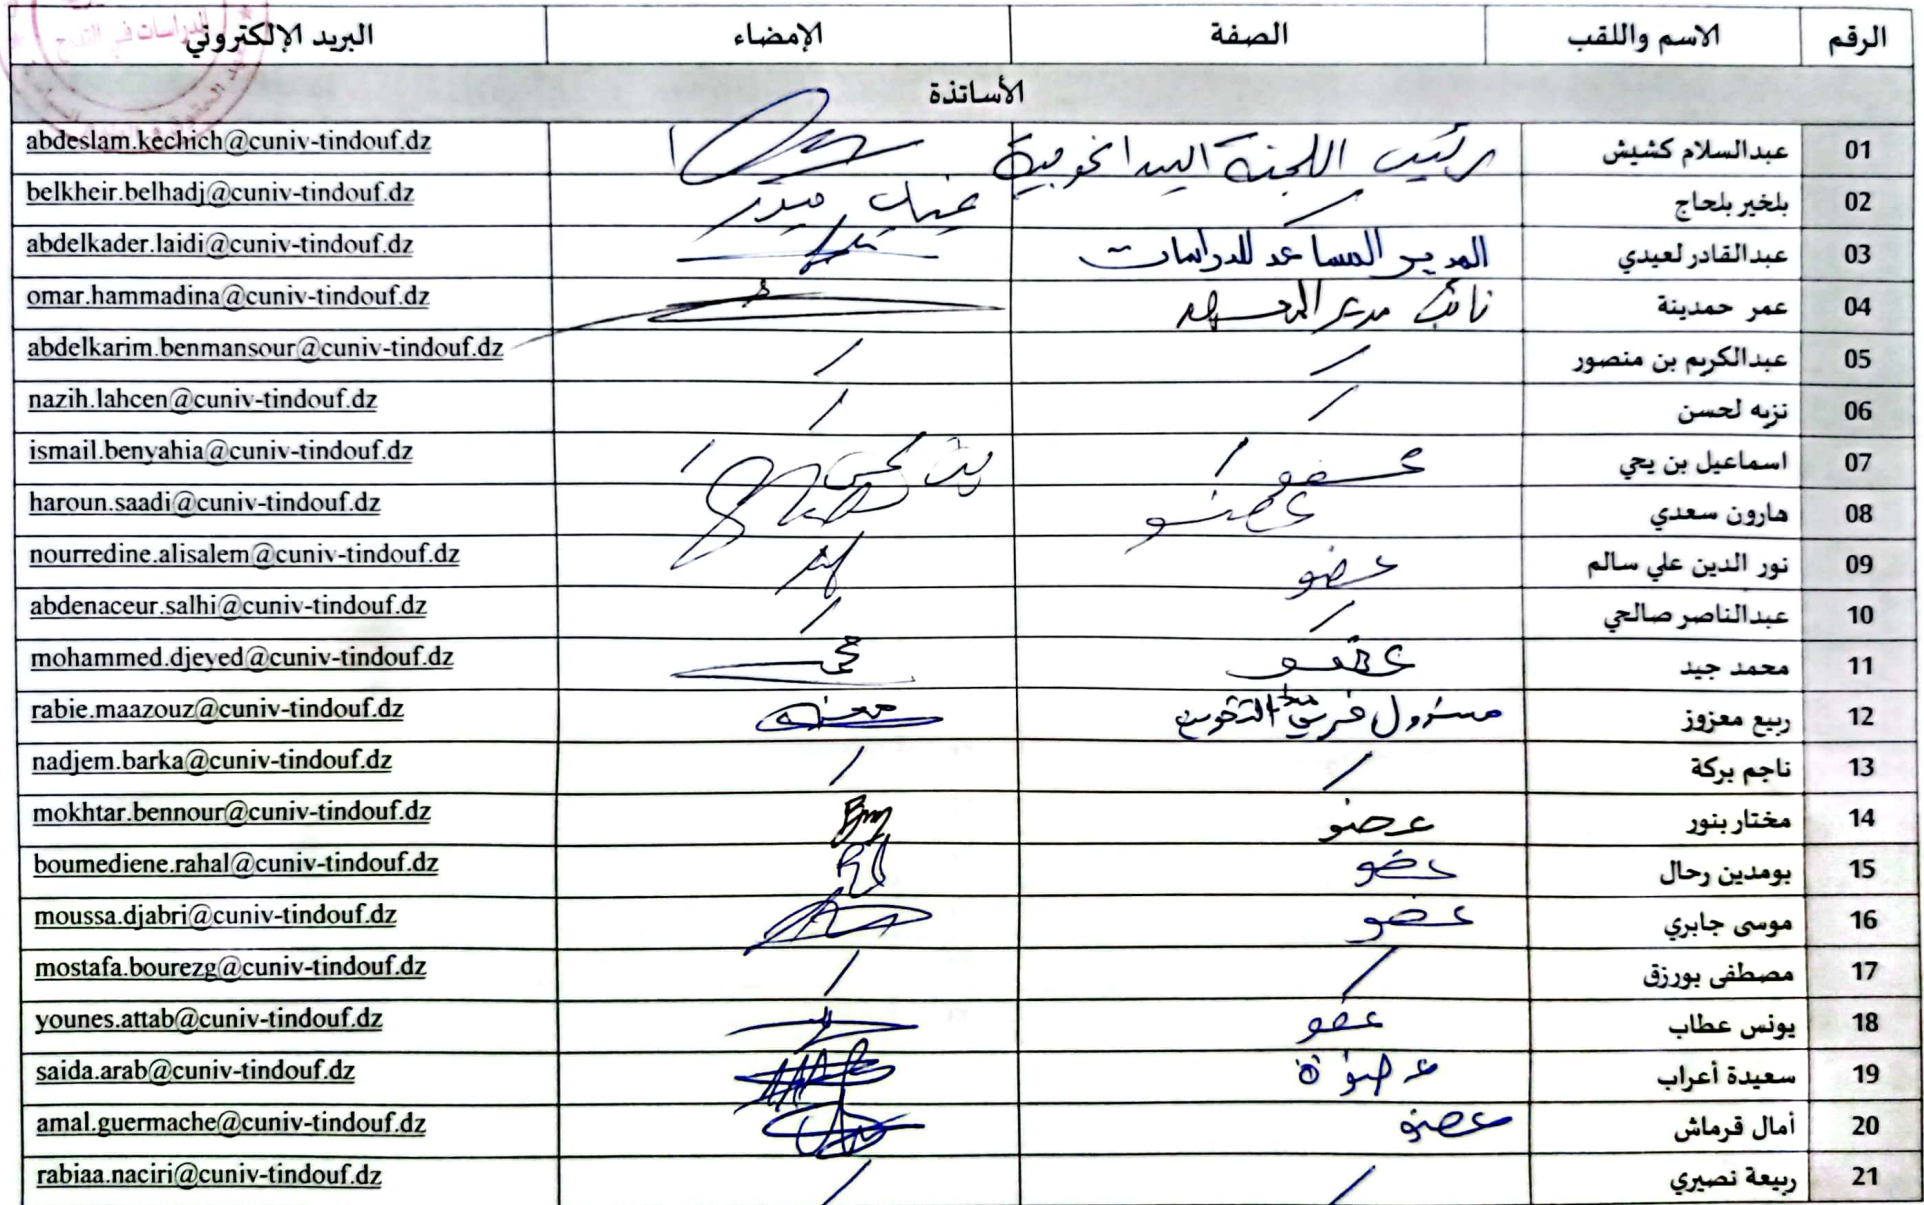 الرقم الاسم واللقب الصفة الإمضاء البريد الإلكتروني
الدراسات في التدرج
الأساتذة
01 عبدالسلام كشيش رئيس اللجنة البيداغوجية abdeslam.kechich@cuniv-tindouf.dz
02 بلخير بلحاج / غياب مبرر belkheir.belhadj@cuniv-tindouf.dz
03 عبدالقادر لعيدي المدير المساعد للدراسات abdelkader.laidi@cuniv-tindouf.dz
04 عمر حمدينة نائب مدير المعهد omar.hammadina@cuniv-tindouf.dz
05 عبدالكريم بن منصور / / abdelkarim.benmansour@cuniv-tindouf.dz
06 نزيه لحسن / / nazih.lahcen@cuniv-tindouf.dz
07 اسماعيل بن يحي عضو ismail.benyahia@cuniv-tindouf.dz
08 هارون سعدي عضو haroun.saadi@cuniv-tindouf.dz
09 نور الدين علي سالم عضو nourredine.alisalem@cuniv-tindouf.dz
10 عبدالناصر صالحي / / abdenaceur.salhi@cuniv-tindouf.dz
11 محمد جيد عضو mohammed.djeyed@cuniv-tindouf.dz
12 ربيع معزوز مسؤول فريق التكوين rabie.maazouz@cuniv-tindouf.dz
13 ناجم بركة / / nadjem.barka@cuniv-tindouf.dz
14 مختار بنور عضو mokhtar.bennour@cuniv-tindouf.dz
15 بومدين رحال عضو boumediene.rahal@cuniv-tindouf.dz
16 موسى جابري عضو moussa.djabri@cuniv-tindouf.dz
17 مصطفى بورزق / / mostafa.bourezg@cuniv-tindouf.dz
18 يونس عطاب عضو younes.attab@cuniv-tindouf.dz
19 سعيدة أعراب عضوة saida.arab@cuniv-tindouf.dz
20 أمال قرماش عضو amal.guermache@cuniv-tindouf.dz
21 ربيعة نصيري / / rabiaa.naciri@cuniv-tindouf.dz